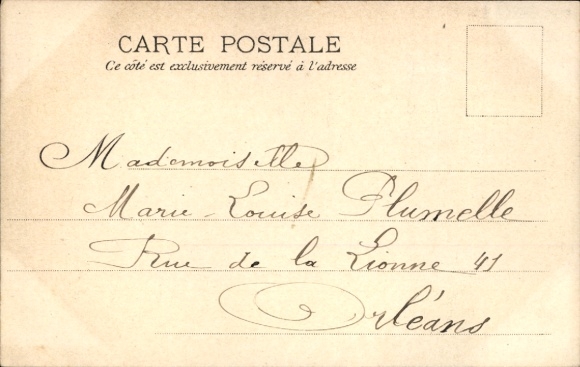 CARTE POSTALE
Ce côté est exclusivement réservé à l'adresse
Mademoiselle
Marie-Louise Plumelle
Rue de la Lionne 41
Orléans